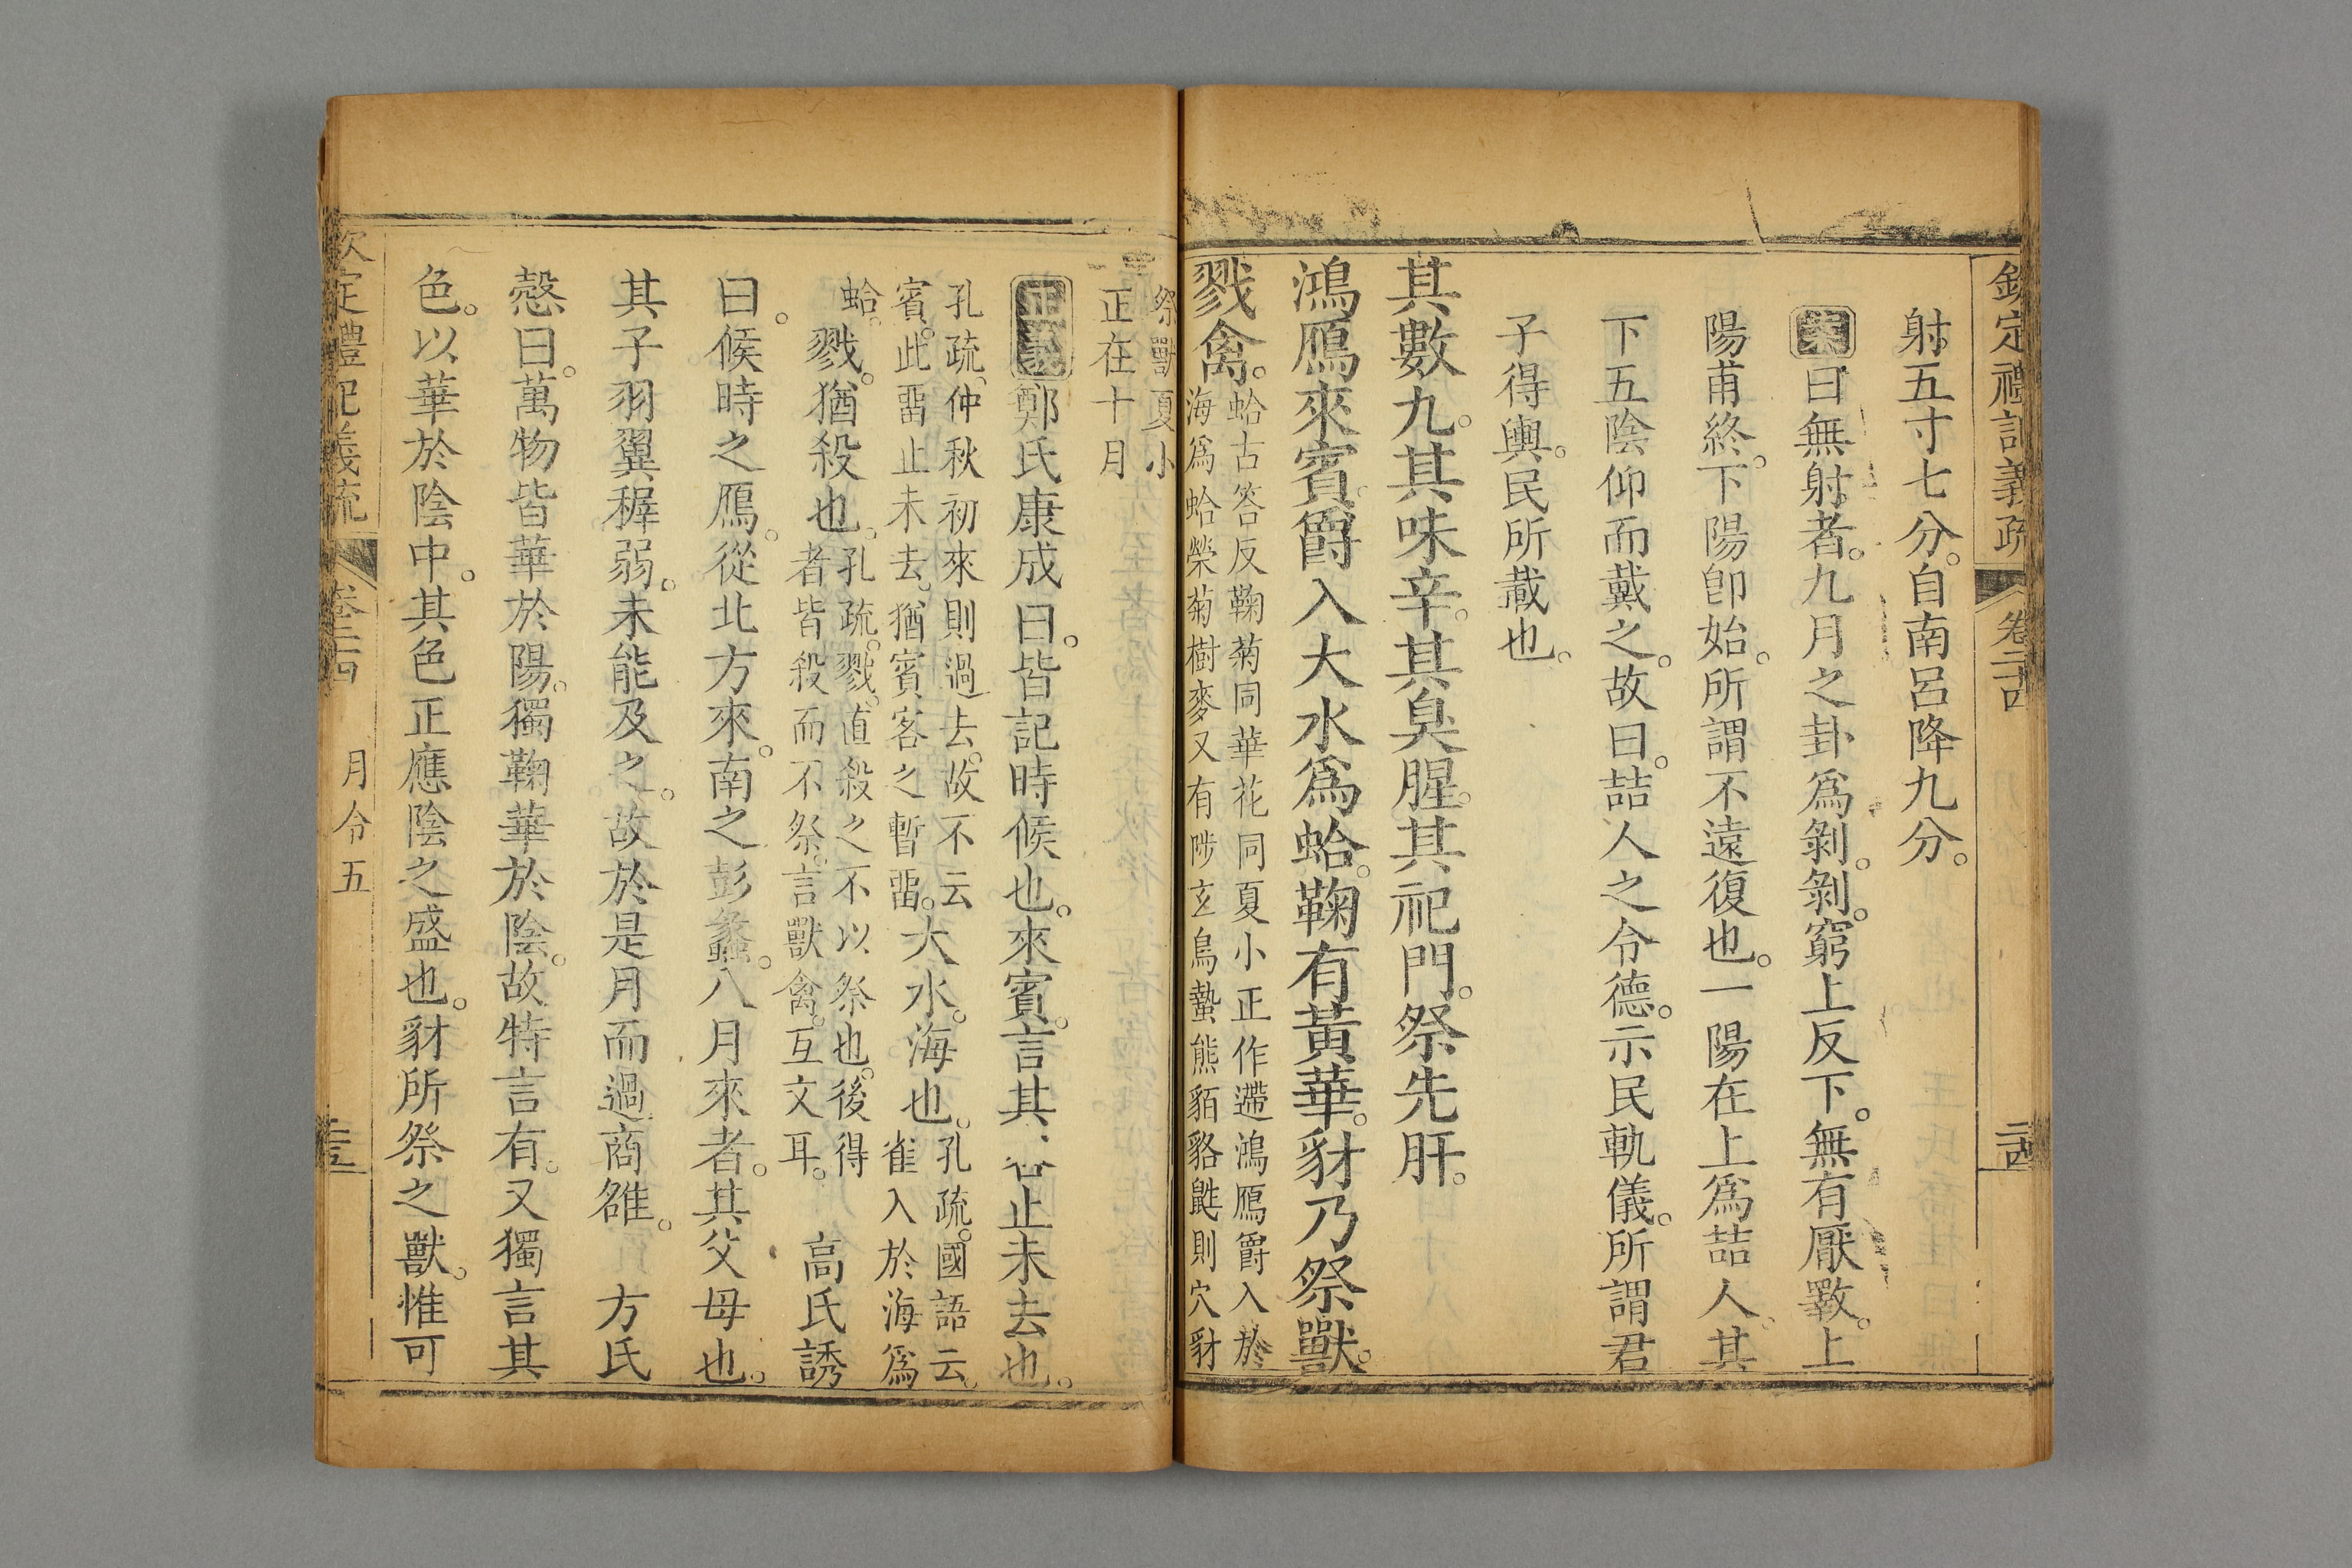 欽定禮記義疏 卷二十四 二十四
射五寸七分。自南呂降九分。
案曰無射者。九月之卦爲剝。剝窮上反下。無有厭斁。上
陽甫終。下陽卽始。所謂不遠復也。一陽在上爲喆人。其
下五陰仰而戴之。故曰。喆人之令德。示民軌儀。所謂君
子得輿。民所載也。
其數九。其味辛。其臭腥。其祀門。祭先肝。
鴻鴈來賓。爵入大水爲蛤。鞠有黃華。豺乃祭獸。
戮禽。
蛤古答反鞠菊同華花同夏小正作遰鴻鴈爵入於
海爲蛤榮菊樹麥又有陟玄鳥蟄熊貊貉鼪則穴豺
祭獸夏小
正在十月
正義鄭氏康成曰。皆記時候也。來賓。言其客止未去也。
孔疏。仲秋初來則過去。故不云
賓。此畱止未去。猶賓客之暫畱。
大水。海也。
孔疏。國語云。
雀入於海爲
蛤。
戮。猶殺也。
孔疏。戮。直殺之不以祭也。後得
者皆殺而不祭。言獸禽。互文耳。
高氏誘
曰。候時之鴈。從北方來。南之彭蠡。八月來者。其父母也。
其子羽翼穉弱。未能及之。故於是月而過商雒。 方氏
愨曰。萬物皆華於陽。獨鞠華於陰。故特言有。又獨言其
色。以華於陰中。其色正應陰之盛也。豺所祭之獸。惟可
欽定禮記義疏 卷二十四 月令五 二十五